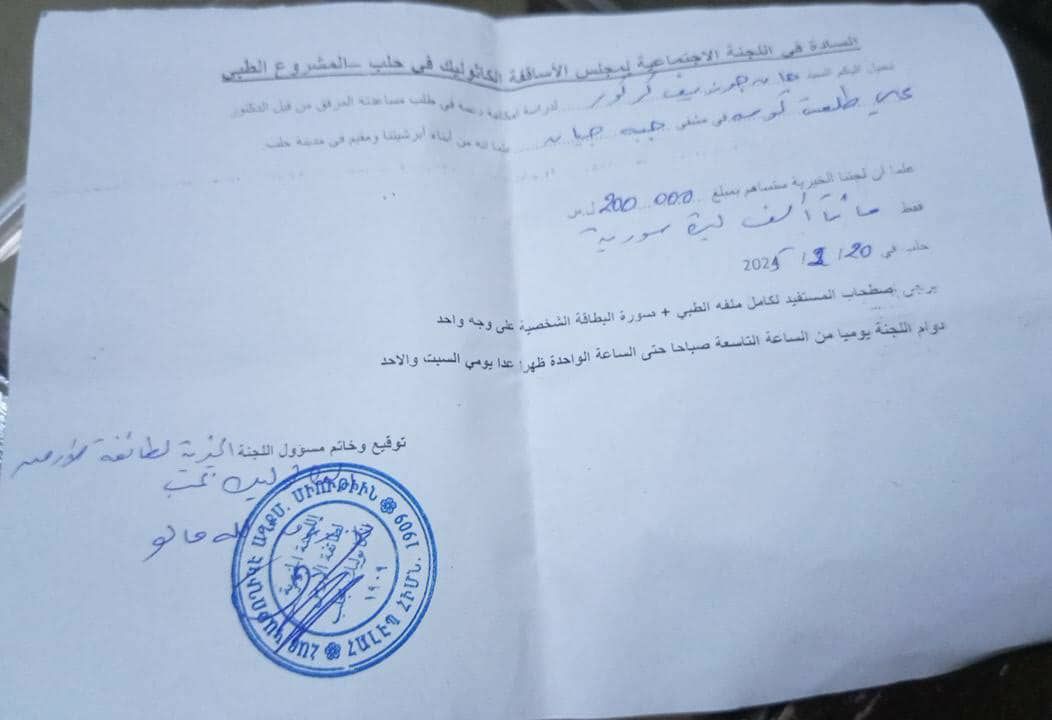 السادة في اللجنة الاجتماعية لمجلس الأساقفة الكاثوليك في حلب -المشروع الطبي
نحيل اليكم السيد جوزيف كركور لدراسة امكانية دعمه في طلب مساعدته المرفق من قبل الدكتور
طلعت في مشفى علما انه من أبناء أبرشيتنا ومقيم في مدينة حلب
علما أن لجنتنا الخيرية ستساهم بمبلغ 200 000 ل.س
فقط مائتا ألف ليرة سورية
حلب في 20/ 2/ 2025
يرجى اصطحاب المستفيد لكامل ملفه الطبي + صورة البطاقة الشخصية على وجه واحد
دوام اللجنة يوميا من الساعة التاسعة صباحا حتى الساعة الواحدة ظهرا عدا يومي السبت والاحد
توقيع وخاتم مسؤول اللجنة الخيرية لطائفة الأرمن
الكاثوليك بحلب
ՀԱՅ ԿԱԹՈՂԻԿԷ ԱՂՔՏ. ՄԻՈՒԹԻՒՆ
ՀԱԼԷՊ ՀԻՄՆ. 1909
اللجنة الخيرية
لطائفة الأرمن
الكاثوليك بحلب
١٩٠٩